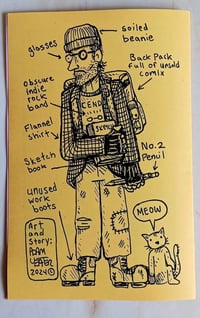 soiled
beanie
glasses
Back Pack
full of unsold
comix
obscure
indie
rock
band
Flannel
shirt
No.2
Pencil
Sketch
book
unused
work
boots
MEOW
Art
and
Story:
ADAM
YEATER
2024©